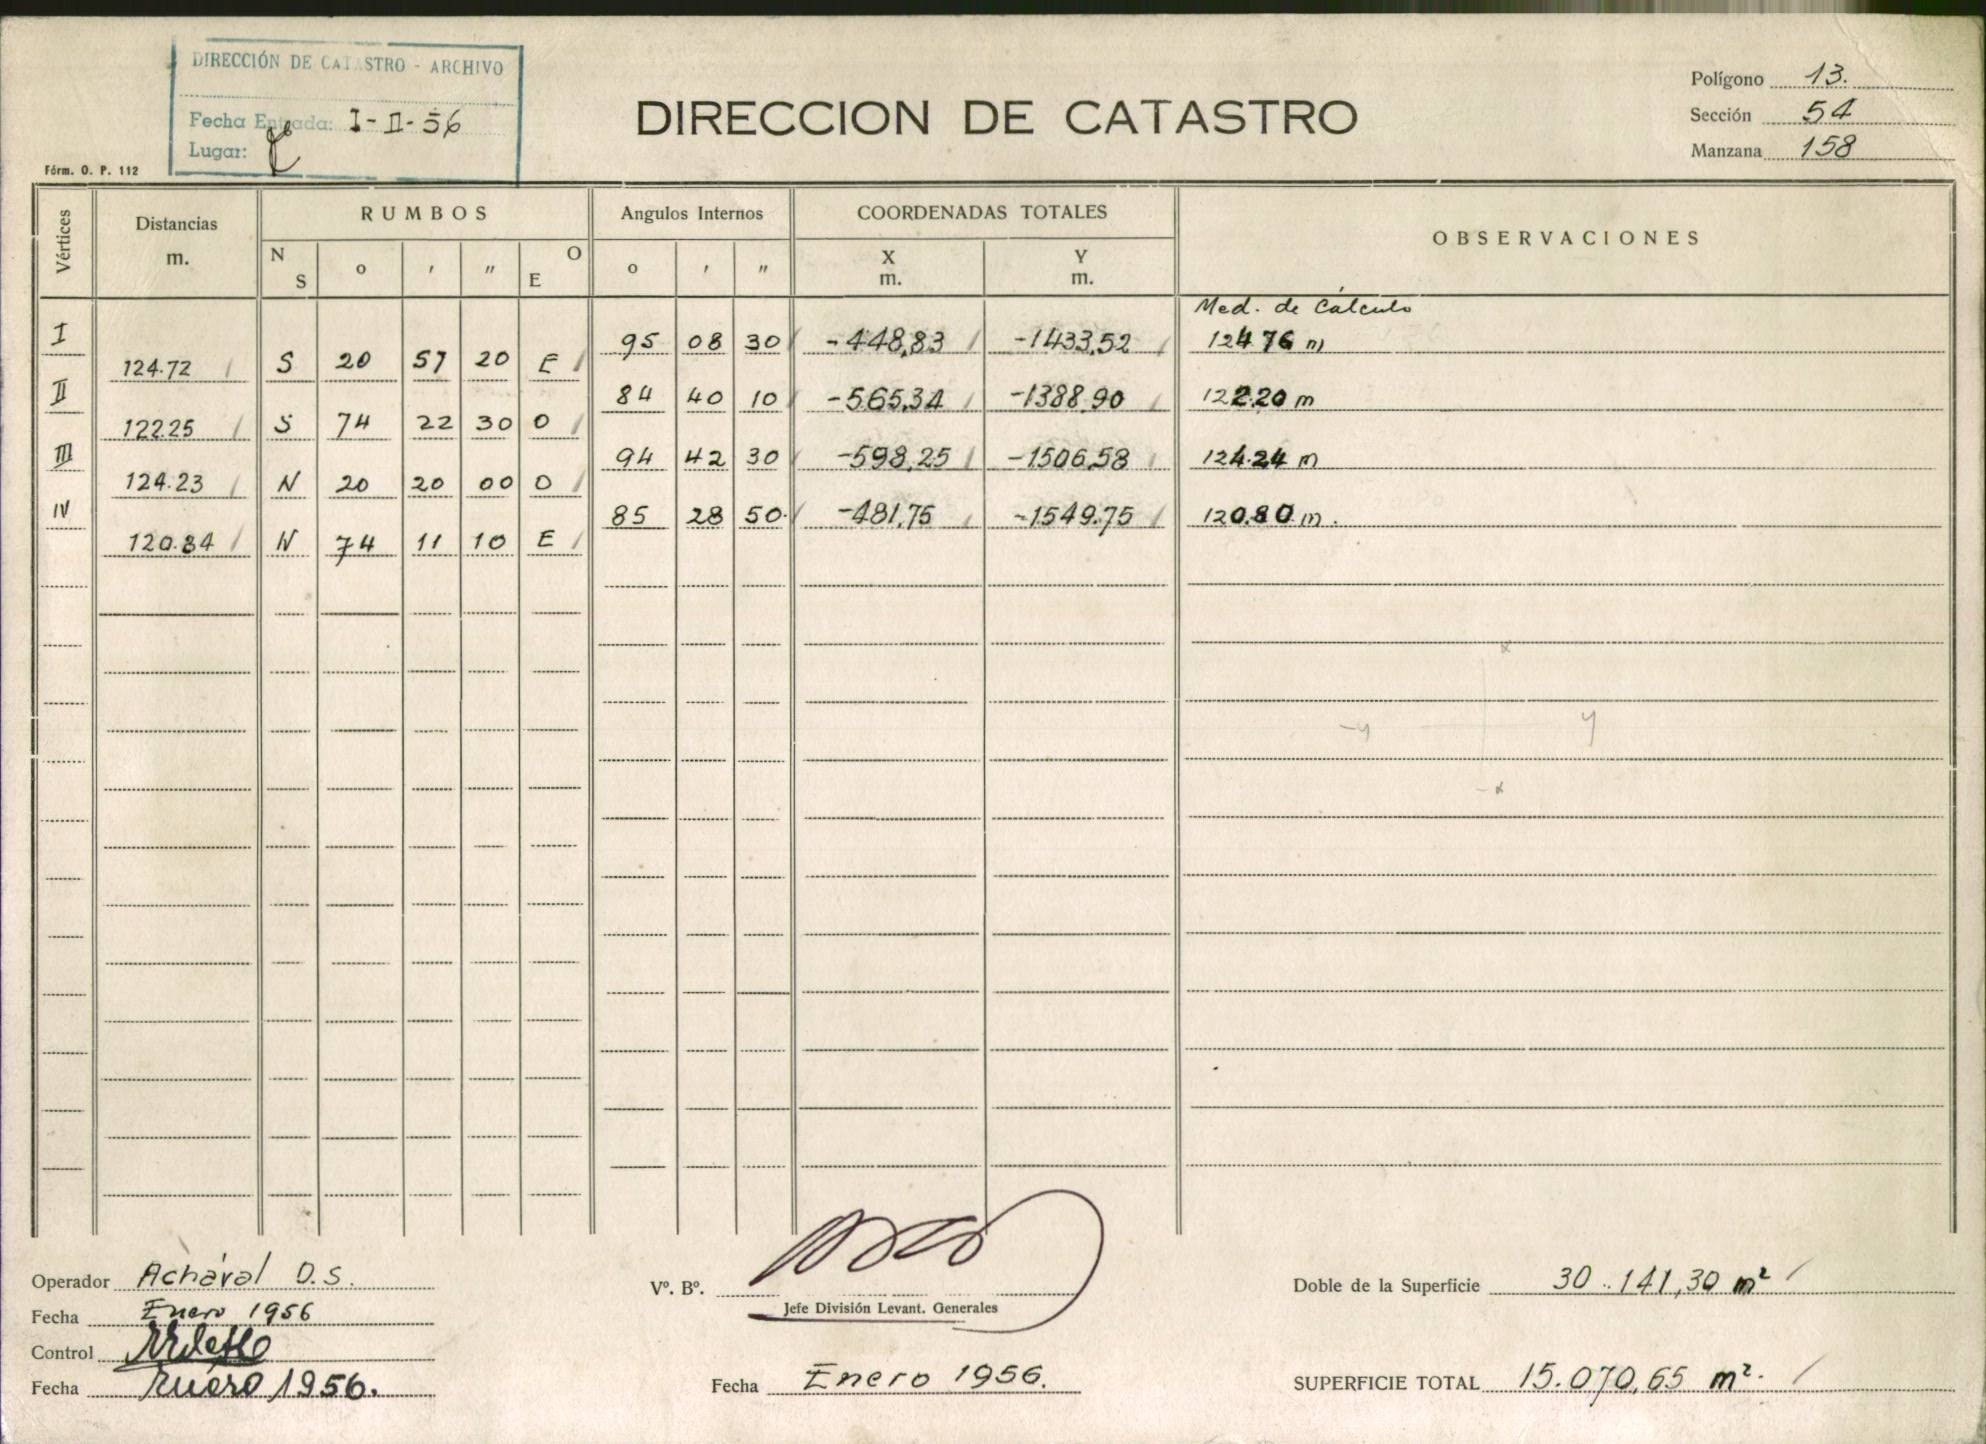 DIRECCIÓN DE CATASTRO - ARCHIVO
Fecha Entrada: I-II-56
Lugar:
Fórm. O. P. 112
DIRECCION DE CATASTRO
Polígono 13.
Sección 54
Manzana 158
Vértices Distancias m. RUMBOS Angulos Internos COORDENADAS TOTALES OBSERVACIONES
N S o ' " O E o ' " X m. Y m.
Med. de Cálculo
I 95 08 30 -448,83 -1433,52 124.76 m
124.72 S 20 57 20 E
II 84 40 10 -565,34 -1388,90 122.20 m
122.25 S 74 22 30 O
III 94 42 30 -598,25 -1506,58 124.24 m
124.23 N 20 20 00 O
IV 85 28 50 -481,75 -1549.75 120.80 m.
120.84 N 74 11 10 E
x
-y y
-x
Operador Achával D.S.
Fecha Enero 1956
Control
Fecha Enero 1956.
Vº. Bº.
Jefe División Levant. Generales
Fecha Enero 1956.
Doble de la Superficie 30.141,30 m²
SUPERFICIE TOTAL 15.070,65 m².